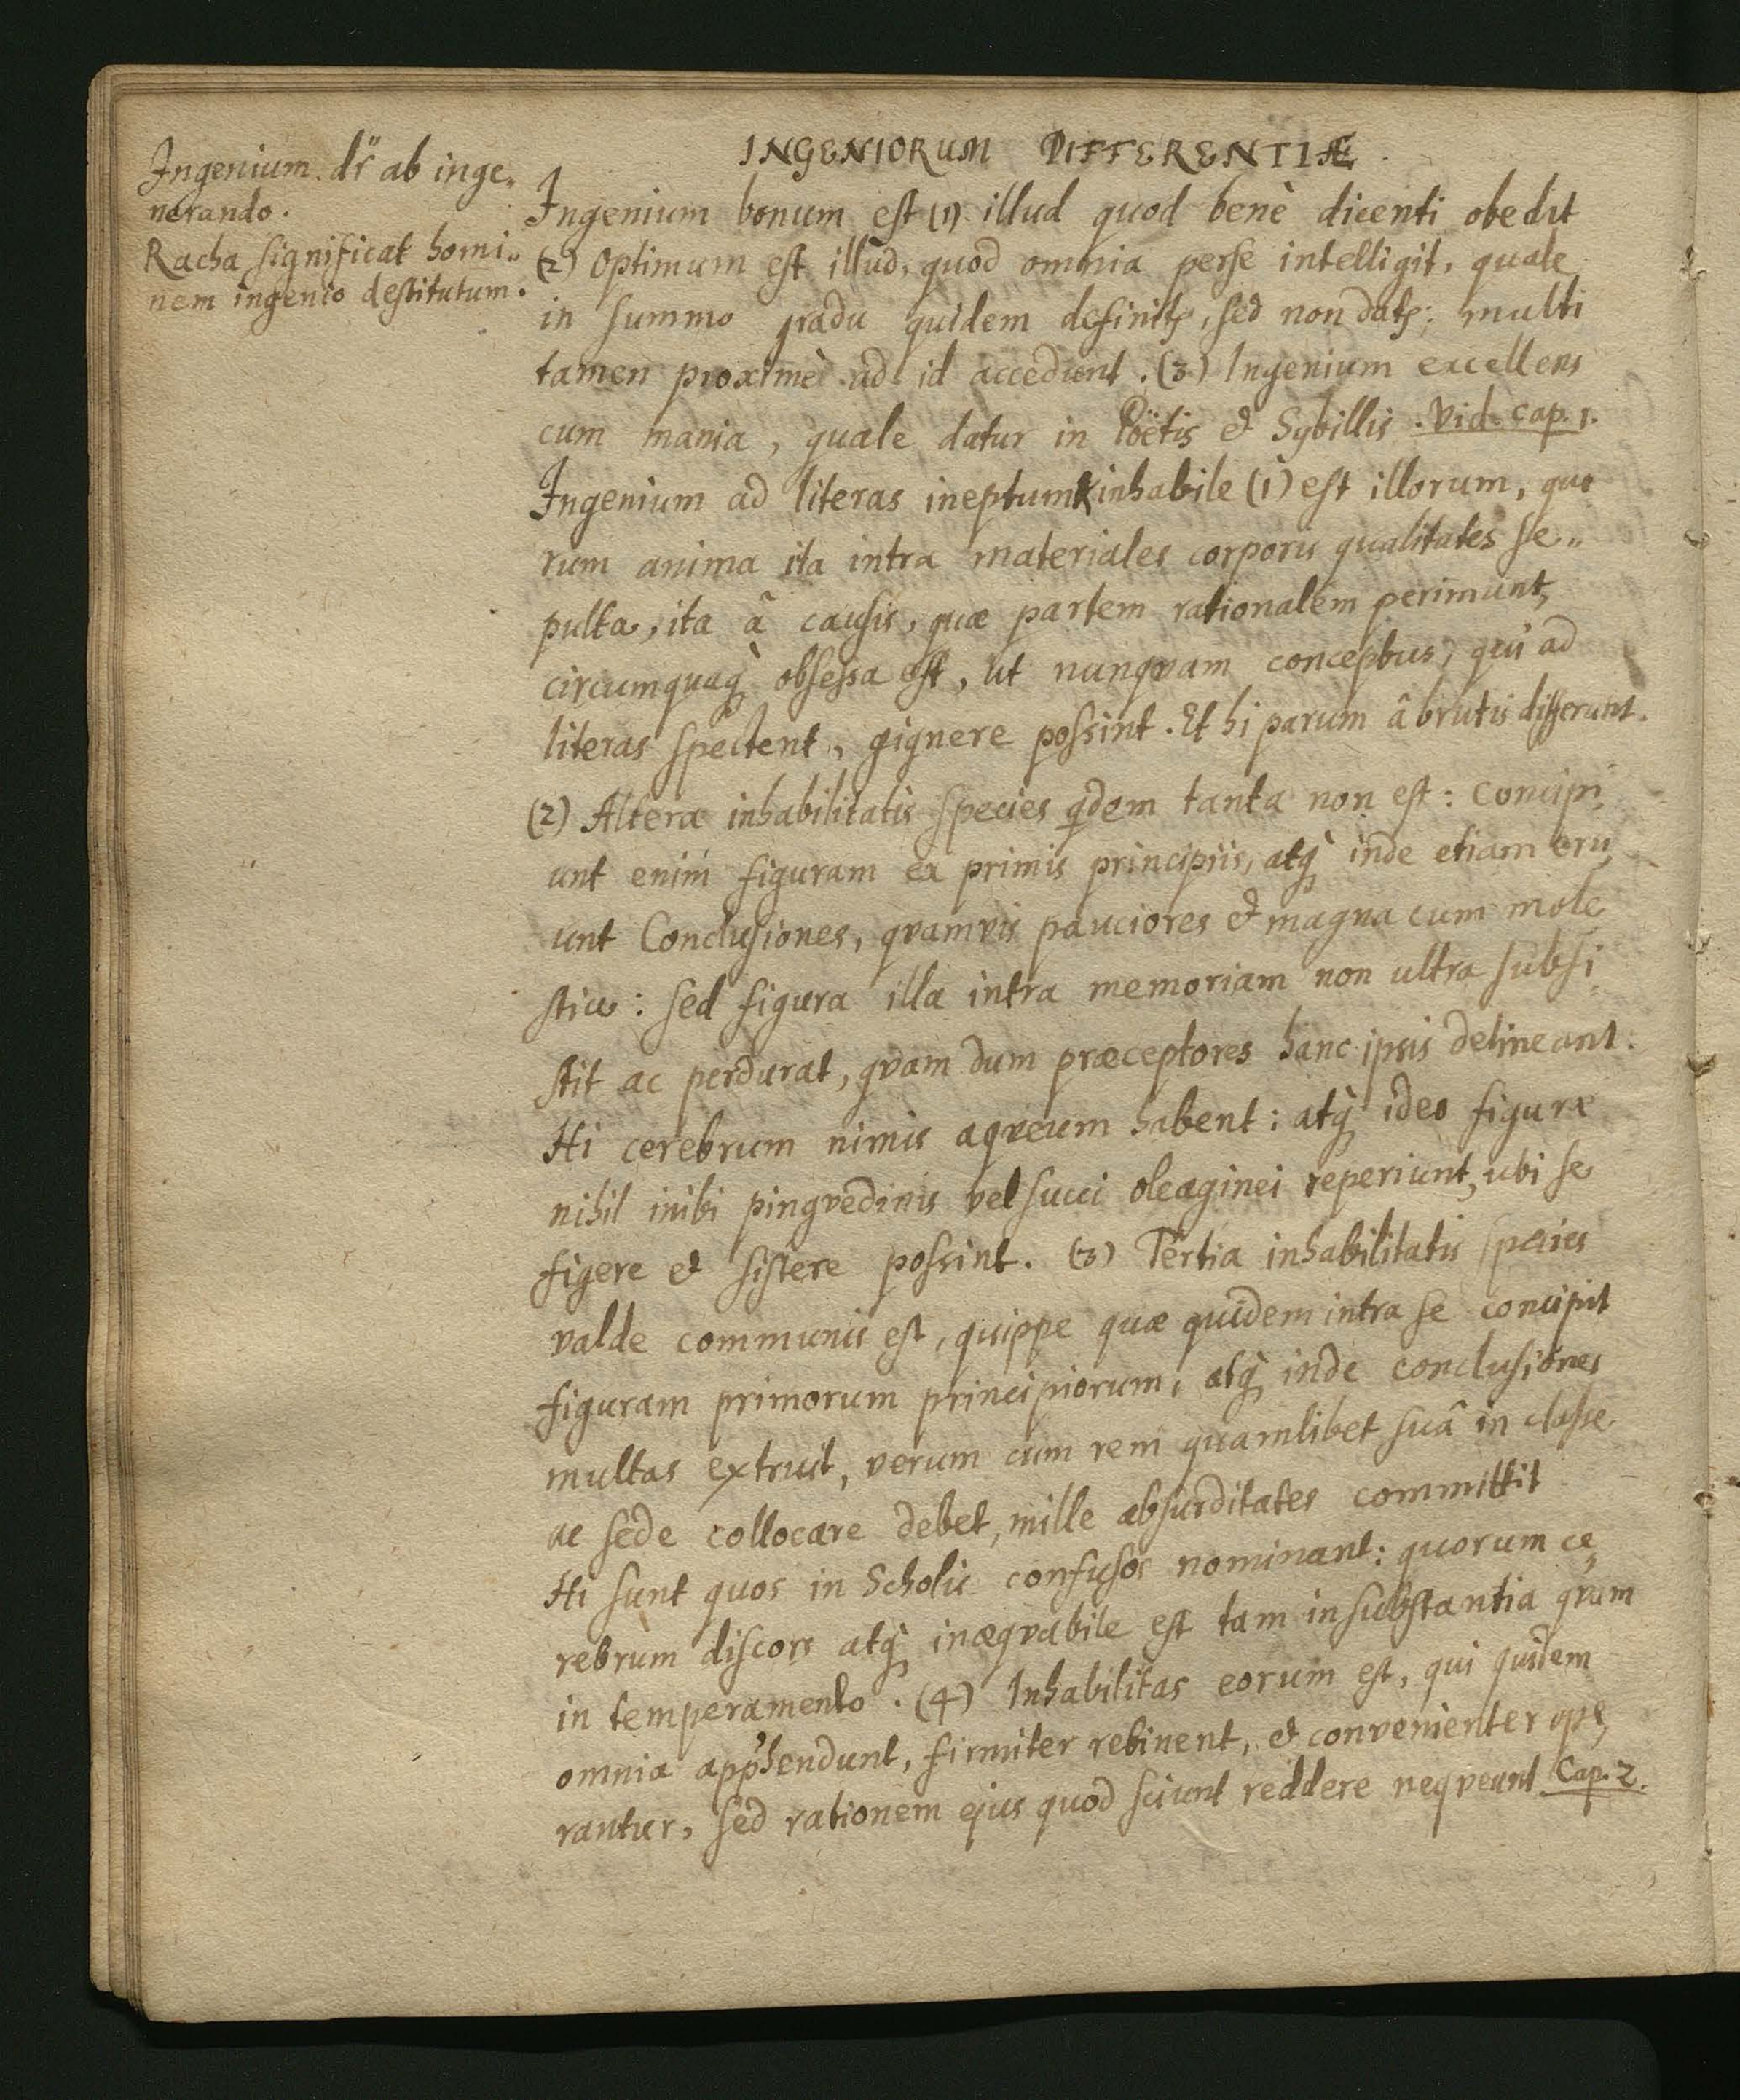 INGENIORUM DIFFERENTIÆ
Ingenium dr̃ ab inge„
nerando.
Racha significat homi„
nem ingenio destitutum.
Ingenium bonum est (1) illud quod benè dicenti obedit
(2) Optimum est illud, quod omnia perse intelligit, quale
in summo gradu quidem definitꝭ, sed non datꝭ; multi
tamen proximè ad id accedunt. (3) Ingenium excellens
cum mania, quale datur in Poëtis & Sybillis. Vid. Cap. 1.
Ingenium ad literas ineptum & inhabile (1) est illorum, quo
rum anima ita intra materiales corporis qualitates se„
pulta, ita â causis, quæ partem rationalem perimunt,
circumquaq̀ obsessa est, ut nunqvam conceptus, qui ad
literas spectent, gignere possint. Et hi parum â brutis differunt.
(2) Altera inhabilitatis species qdem tanta non est: Concipi„
unt enim figuram ex primis principiis, atq̀ inde etiam eru„
unt Conclusiones, qvamvis pauciores & magna cum mole
stia: sed figura illa intra memoriam non ultra subsi„
stit ac perdurat, qvam dum præceptores hanc ipsis delineant.
Hi cerebrum nimis aqveum habent: atq̀ ideo figuræ
nihil inibi pingvedinis vel succi oleaginei reperiunt, ubi se
figere & sistere possint. (3) Tertia inhabilitatis species
valde communis est, quippe quæ quidem intra se concipit
figuram primorum principiorum, atq̀ inde conclusiones
multas extruit, verum cum rem quamlibet suâ in classe
ac sede collocare debet, mille absurditates committit
Hi sunt quos in Scholis confusos nominant: quorum ce„
rebrum discors atq̀ inæqvabile est tam in substantia qvam
in temperamento. (4) Inhabilitas eorum est, qui quidem
omnia app̃hendunt, firmiter retinent, & convenienter ope„
rantur, sed rationem ejus quod sciunt reddere neqveunt Cap. 2.